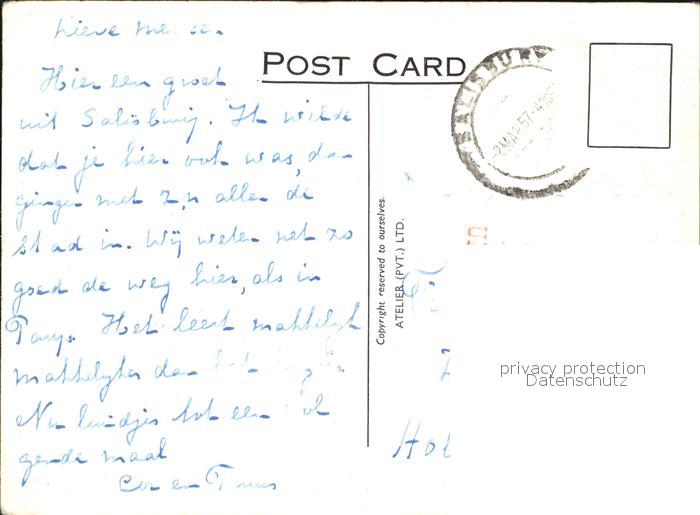 Lieve me sen
POST CARD
Hier een groet
uit Salisbury. Ik wilde
dat je hier ook was, dan
gingen met z,n allen de
stad in. Wij weten net zo
goed de weg hier, als in
Het leert makkelijk
makkelijker dan
Nu luidjes tot een vol
gende maal
Cor en Truus
SALISBURY
2 MAR 57
Copyright reserved to ourselves.
ATELIER (PVT.) LTD.
Hol
privacy protection
Datenschutz